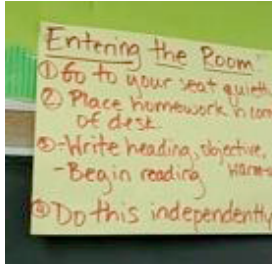 Entering the Room
① Go to your seat quietl
② Place homework n corn
of desk.
③ -Write heading, objective,
-Begin reading warm-
④ Do this independently